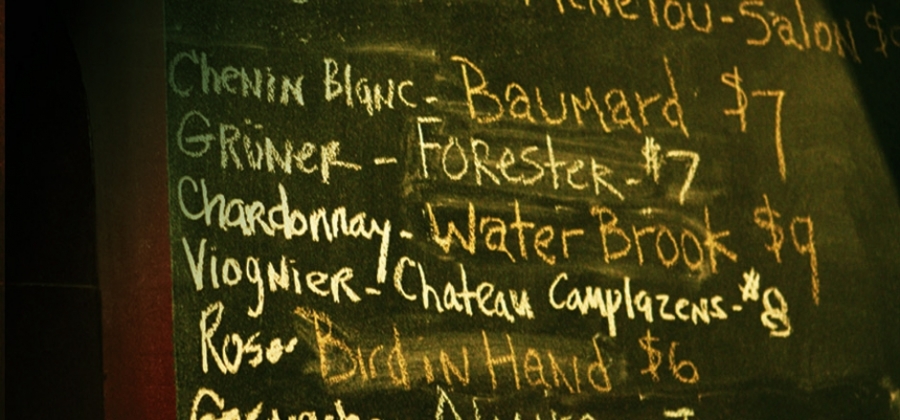 Menetou-Salon $
Chenin Blanc - Baumard $7
GRüNER - FORESTER - $7
Chardonnay - Water Brook $9
ViogNieR - Chateau Camplazens - $8
Rose Bird in Hand $6